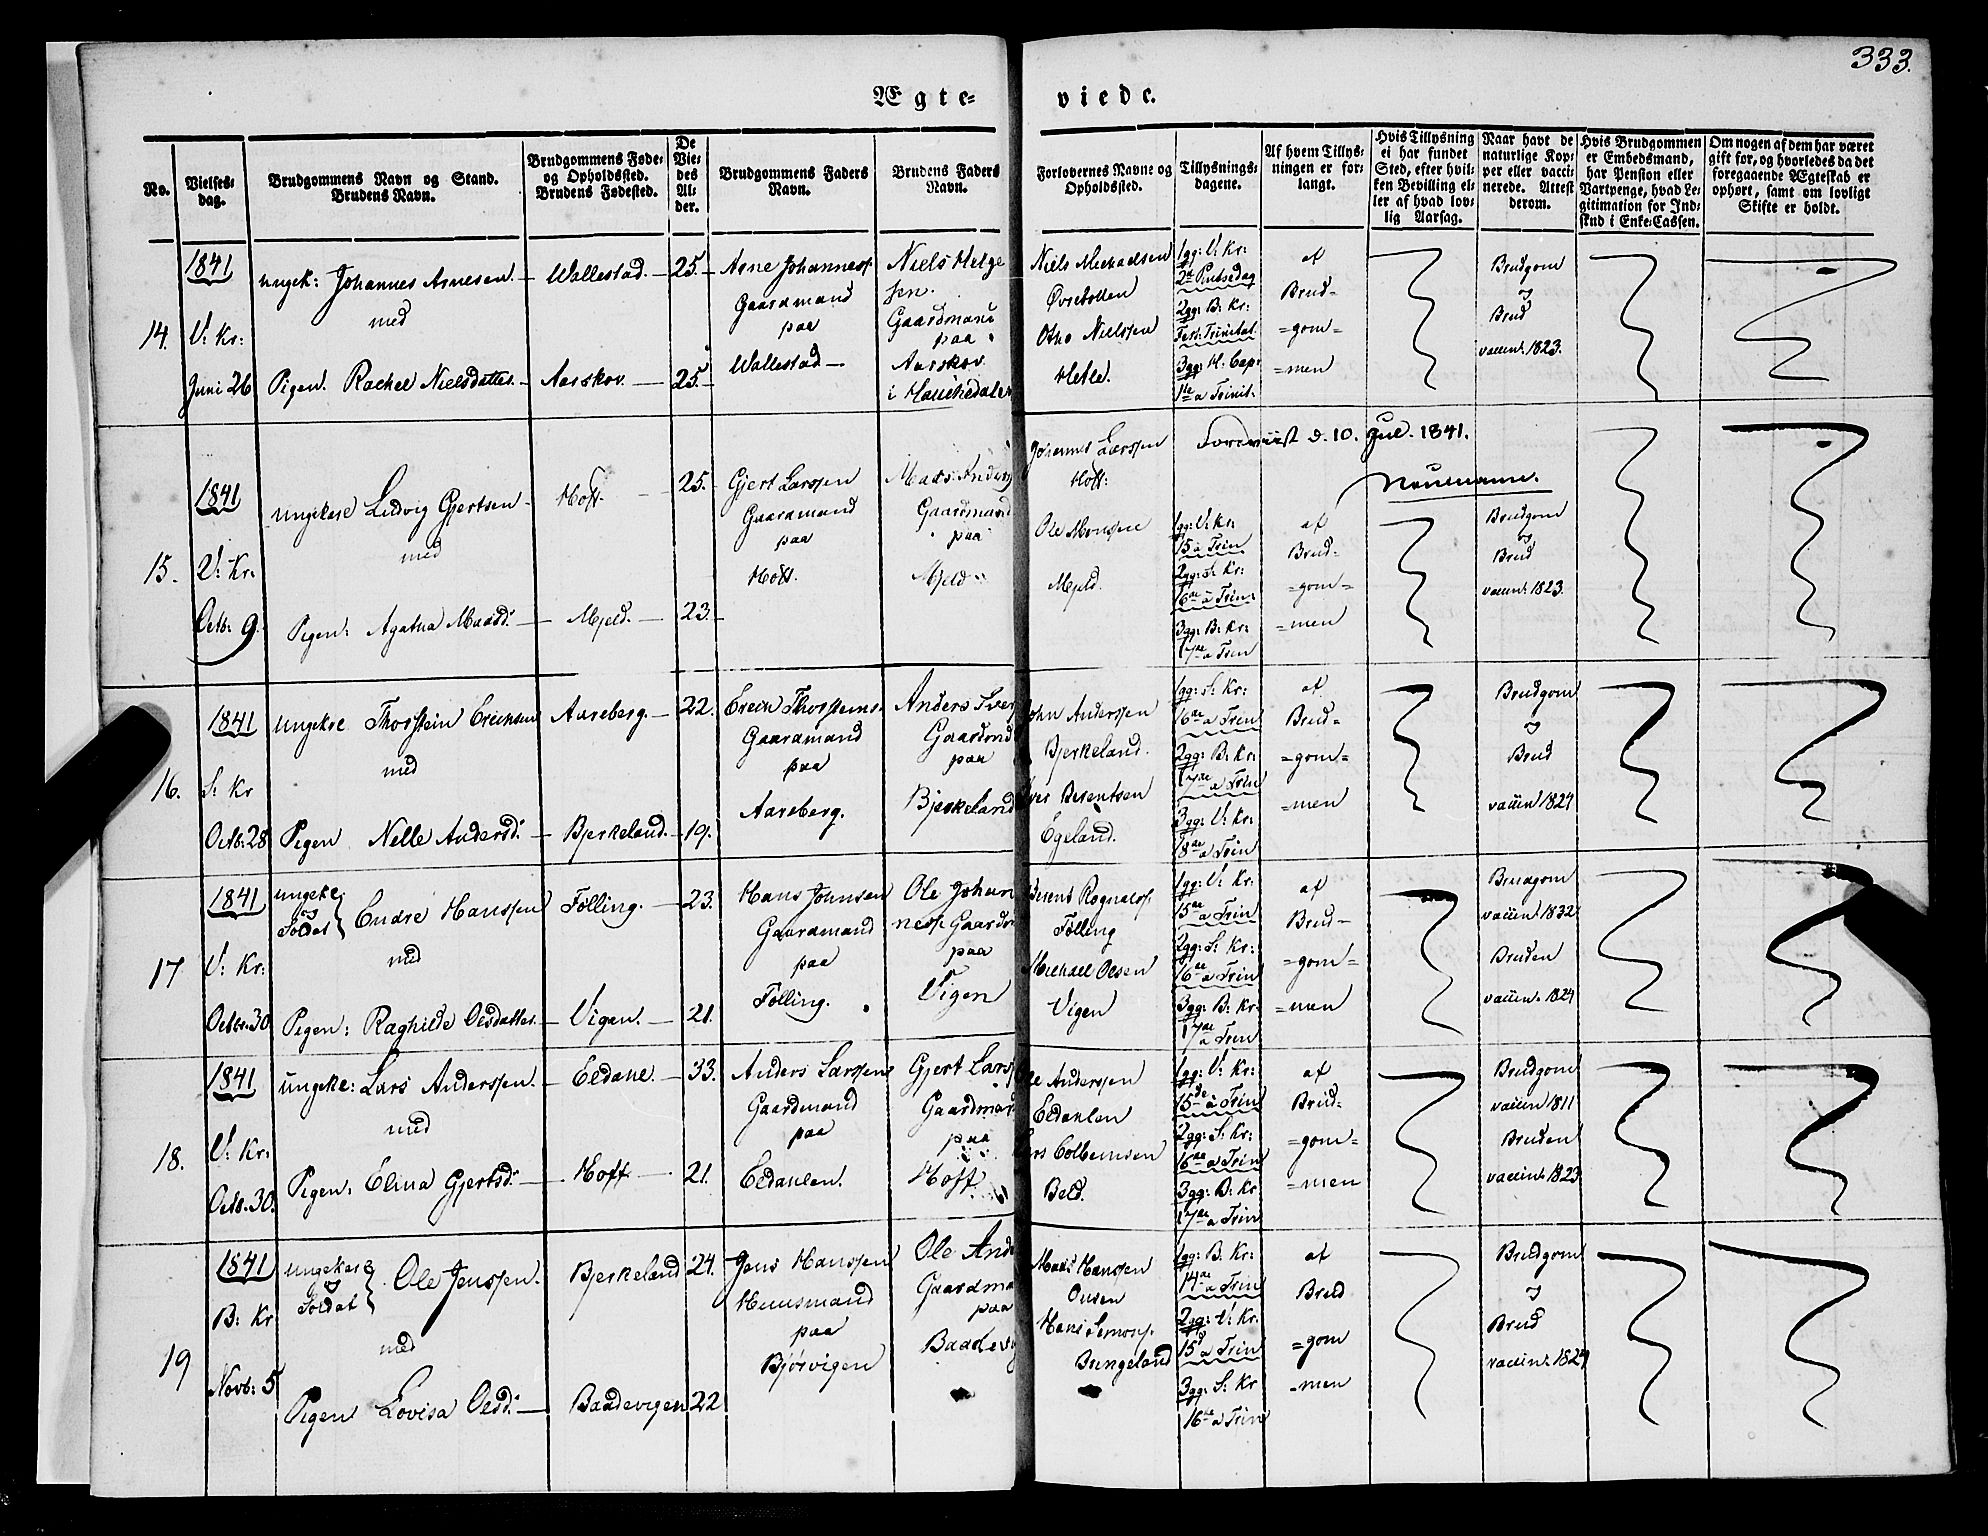 333.
Ægte-
viede.
No.
Vielses-
dag.
Brudgommens Navn og Stand.
Brudens Navn.
Brudgommens Føde-
og Opholdssted.
Brudens Fødested.
De
Vie-
des
Al-
der.
Brudgommens Faders
Navn.
Brudens Faders
Navn.
Forlovernes Navne og
Opholdssted.
Tillysnings-
dagene.
Af hvem Tillys-
ningen er for-
langt.
Hvis Tillysning
ei har fundet
Sted, efter hvil-
ken Bevilling el-
ler af hvad lov-
lig Aarsag.
Naar havt de
naturlige Kop-
per eller vacci-
nerede. Attest
derom.
Hvis Brudgommen
er Embedsmand,
har Pension eller
Vartpenge, hvad Le-
gitimation for Ind-
skud i Enke-Cassen.
Om nogen af dem har været
gift før, og hvorledes da det
foregaaende Ægteskab er
ophørt, samt om lovligt
Skifte er holdt.
14.
1841
V: Kr:
Juni 26
ungk: Johannes Arnesen.
med
Pigen. Rachel Nielsdatter.
Wallestad
Aarskov
25.
25.
Arne Johanness.
Gaardmand
paa
Wallestad
Niels Helge
sen.
Gaardmand
paa
Aarskov
i Hauchedalen
Niels Michaelsen
Øvretollen
Otho Nielssen
Hetle.
1gg: V: Kr:
2d Pintsedag
2gg: B: Kr:
Fest: Trinitat.
3gg: H. Cap:
1te a Trinit:
af
Brud-
=gom=
=men
Brudgom
og
Brud
vaccint 1823.
15.
1841
V: Kr:
Octb: 9.
ungkarl Ludvig Gjertsen
med
Pigen: Agatha Madsd:
Hoff.
Mjeld.
25.
23.
Gjert Larssen
Gaardmand
paa
Hoff.
Mads Anders
Gaardmand
paa
Mjeld
Johannes Larssen
Hoff:
Ole Monsen
Mjeld.
Foreviist d. 10. Jul. 1841.
Neumann.
1gg: V: Kr:
15 a Trin
2gg: S: Kr:
16de a Trin:
3gg: B: Kr:
17de a Trin
af
Brud-
=gom=
=men
Brudgom
og
Brud
vaccint 1823.
16.
1841
S: Kr
Octb: 28
ungkre Thorstein Erichsen
med
Pigen Nelle Andersd:
Aareberg.
Bjerkeland.
22.
19.
Erich Thorstens.
Gaardmand
paa
Aareberg.
Anders Iver
Gaardmd
paa
Bjerkeland
John Anderssen
Bjerkeland.
Iver Berentsen
Egeland.
1gg: S: Kr:
16de a Trin
2gg: B: Kr:
17de a Trin
3gg: V: Kr:
18de a Trin
af
Brud=
=gom=
=men
Brudgom
og
Brud
vaccint 1824
17
1841
V: Kr:
Octbr. 30
ungke
og
Soldat
Endre Hanssen
med
Pigen: Raghilde Olsdatter
Følling.
Vigen.
23.
21.
Hans Johnsen
Gaardmand
paa
Følling.
Ole Johan
ness. Gaardm
paa
Vigen
Berent Rognalds.
Følling
Michael Olsen
Vigen
1gg: V: Kr:
15de a Trin
2gg: S: Kr:
16de a Trin
3gg: B: Kr:
17de a Trin
af
Brud-
=gom=
=men
Brudgom
vaccint 1832
Bruden
vaccint 1824
18.
1841
V: Kr:
Octb. 30.
ungke: Lars Anderssen.
med
Pigen: Elina Gjertsd:
Hoff
33.
21.
Anders Larssen
Gaardmand
paa
Gjert Larss
Gaardmand
paa
Hoff
Ole Anderssen
Lars Colbeinsen
1gg: V: Kr:
15de a Trin
2gg: S: Kr:
16de a Trin
3gg: B: Kr
17de a Trin
af
Brud-
=gom=
=men
Brudgom
vaccin 1811
Bruden
vaccint 1823
19
1841
B: Kr
Novb: 5
ungkarl
og
Soldat
Ole Jenssen.
med
Pigen Lovisa Olsd:
Bjerkeland
Baadevigen
24.
22
Jens Hanssen
Huusmand
paa
Bjørvigen
Ole Ande
Gaardma
paa
Baadevig
Mads Hanssen
Hans Simons.
Bringeland
1gg: B: Kr:
14de a Trin
2gg: V: Kr:
15d a Trin
3gg: S: Kr
16de a Trin
af
Brud
=gom
=men
Brudgom
og
Brud
vaccint 1824